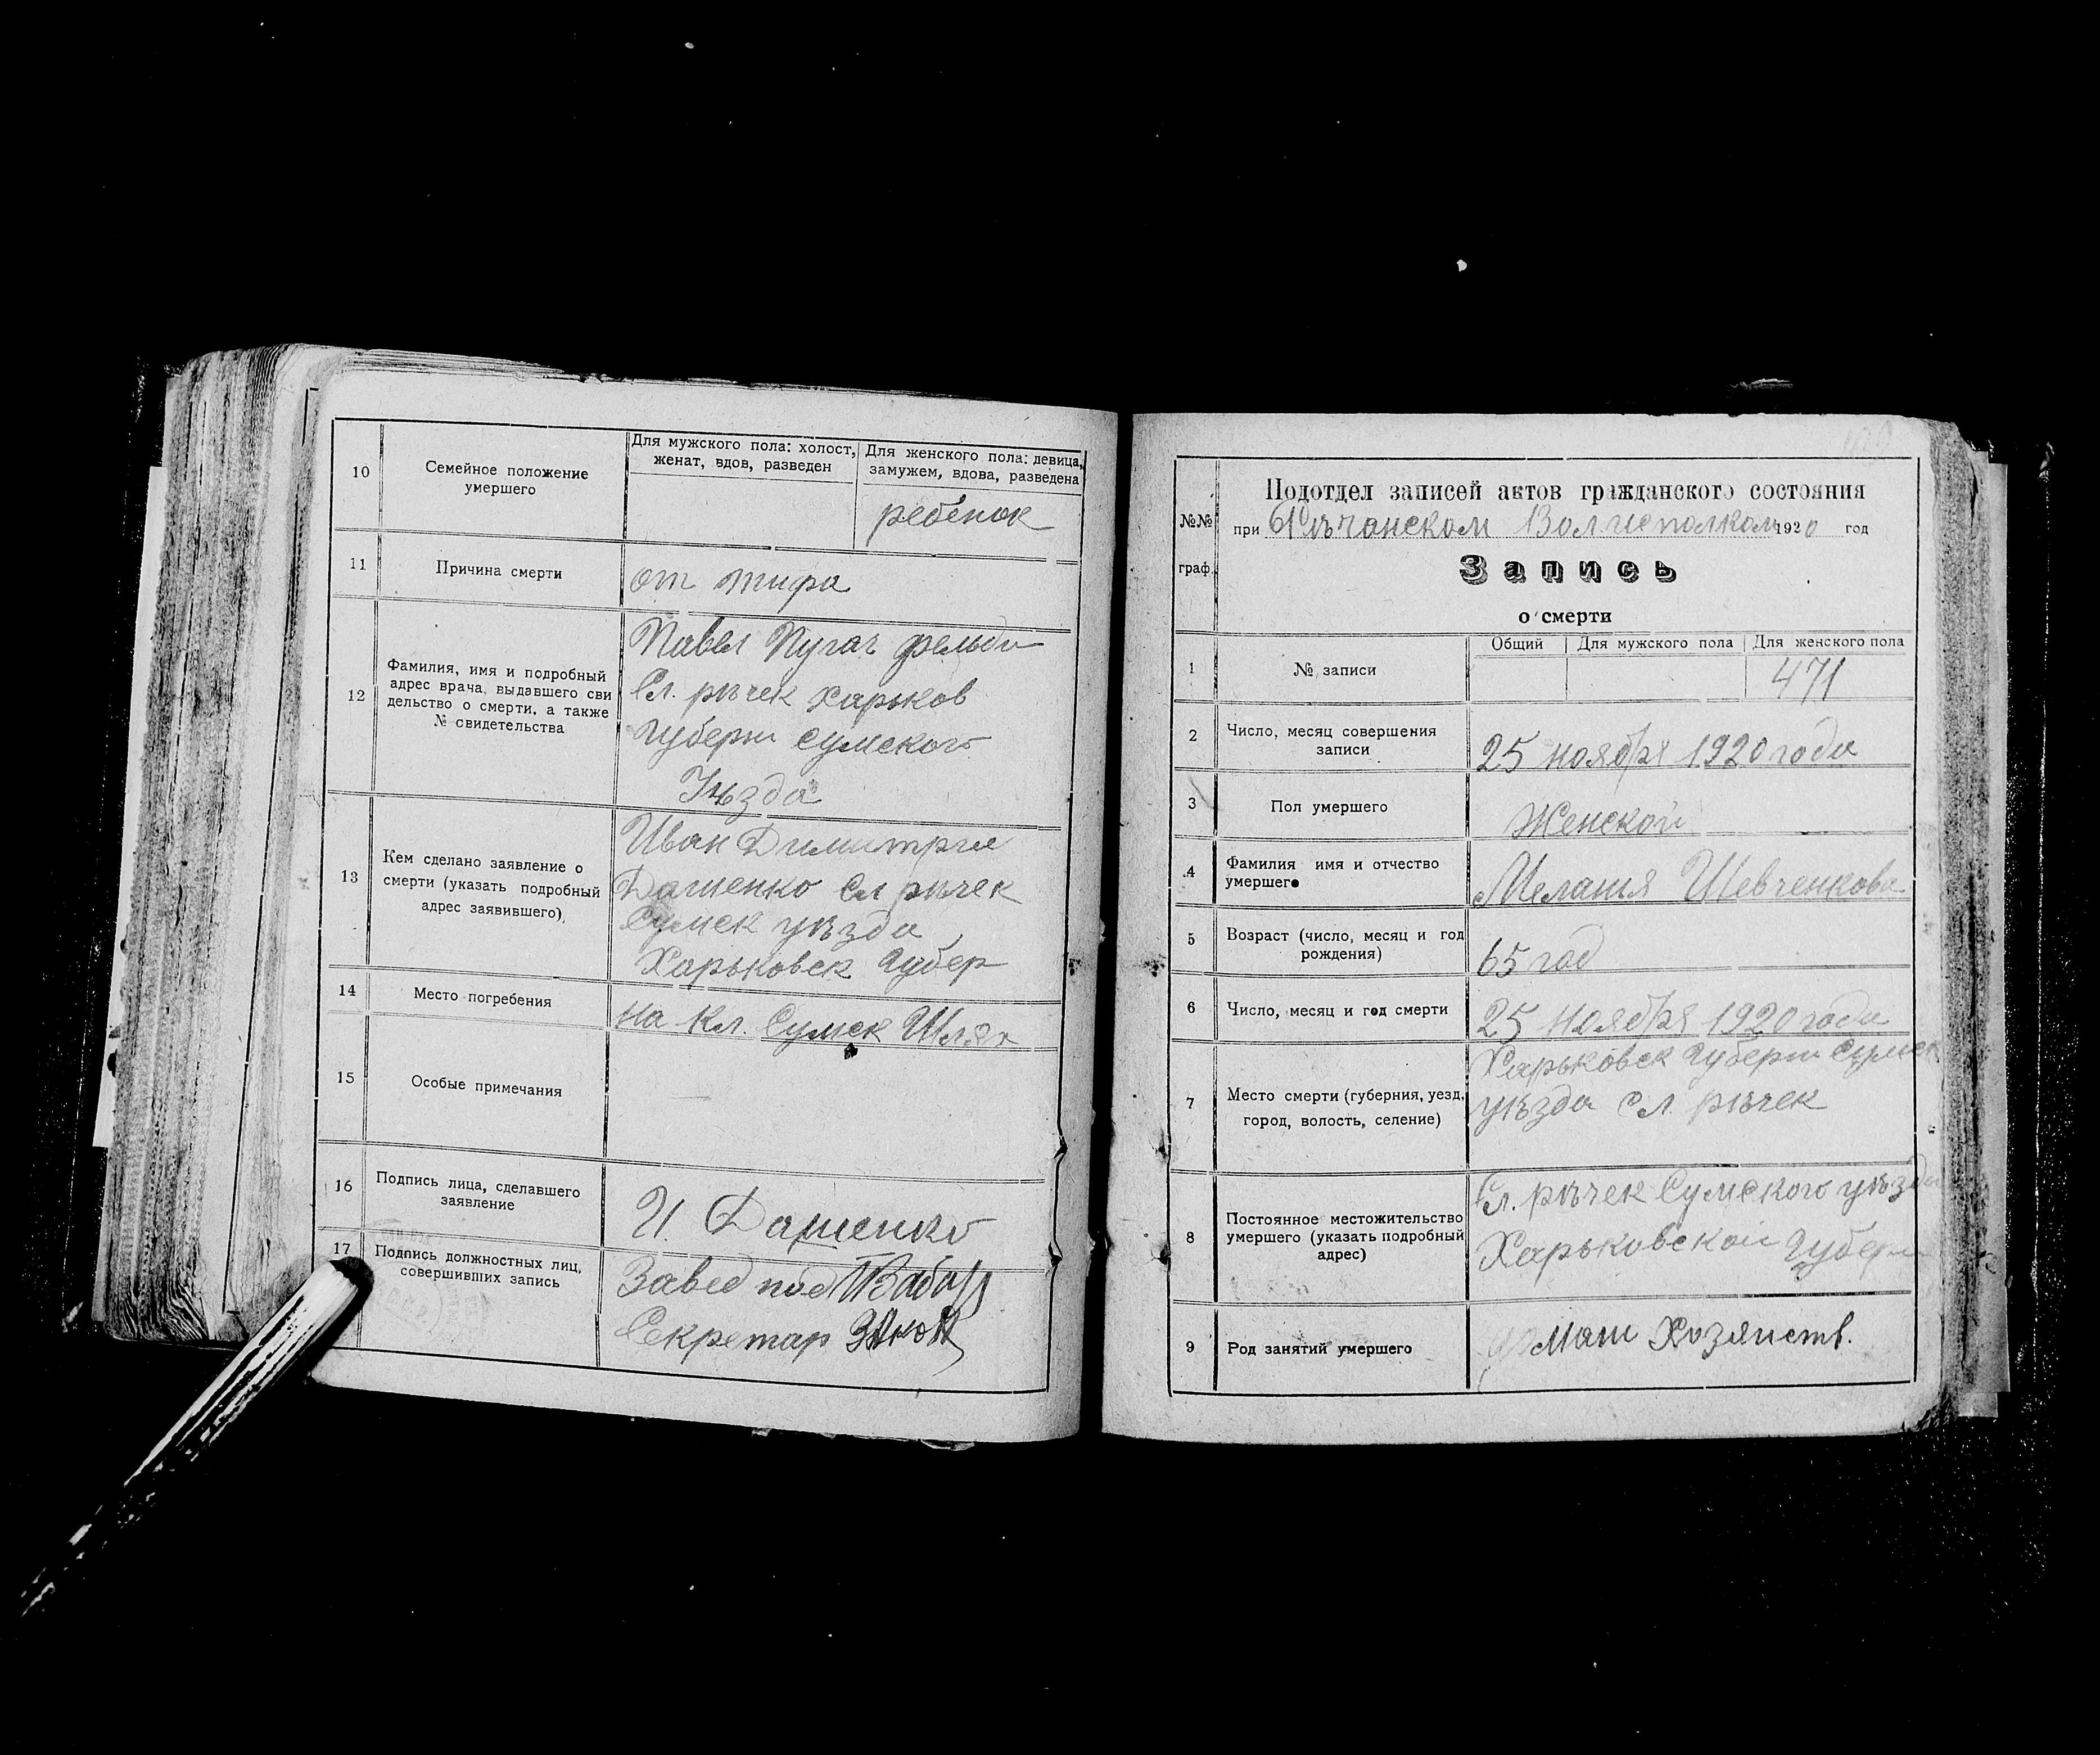 10
Семейное положение
умершего
Для мужского пола: холост,
женат, вдов, разведен
Для женского пола: девица,
замужем, вдова, разведена
ребенок
11
Причина смерти
от тифа
12
Фамилия, имя и подробный
адрес врача, выдавшего сви
дельство о смерти, а также
№ свидетельства
Павел Пугач фельдш
Сл. рѣчек Харьков
Губерни Сумского
Уѣзда
13
Кем сделано заявление о
смерти (указать подробный
адрес заявившего)
Иван Димитрие
Дашенко Сл рѣчек
Сумск уѣзда
Харьковск Губер
14
Место погребения
на Кл. Сумск Шлях
15
Особые примечания
16
Подпись лица, сделавшего
заявление
И. Дашенко
17
Подпись должностных лиц,
совершивших запись
Завед под
Секретар
№№
граф.
Подотдел записей актов гражданского состояния
при Рѣчанском Волисполком 1920 год
Запись
о смерти
1
№ записи
Общий
Для мужского пола
Для женского пола
471
2
Число, месяц совершения
записи
25 ноября 1920 года
3
Пол умершего
Женской
4
Фамилия имя и отчество
умершего
Мелания Шевченкова
5
Возраст (число, месяц и год
рождения)
65 год
6
Число, месяц и год смерти
25 ноября 1920 года
7
Место смерти (губерния, уезд,
город, волость, селение)
Харьковск Губерни Сумск
уѣзда Сл рѣчек
8
Постоянное местожительство
умершего (указать подробный
адрес)
Сл. рѣчек Сумского уѣзда
Харьковской Губерн
9
Род занятий умершего
маш Хозяиств.